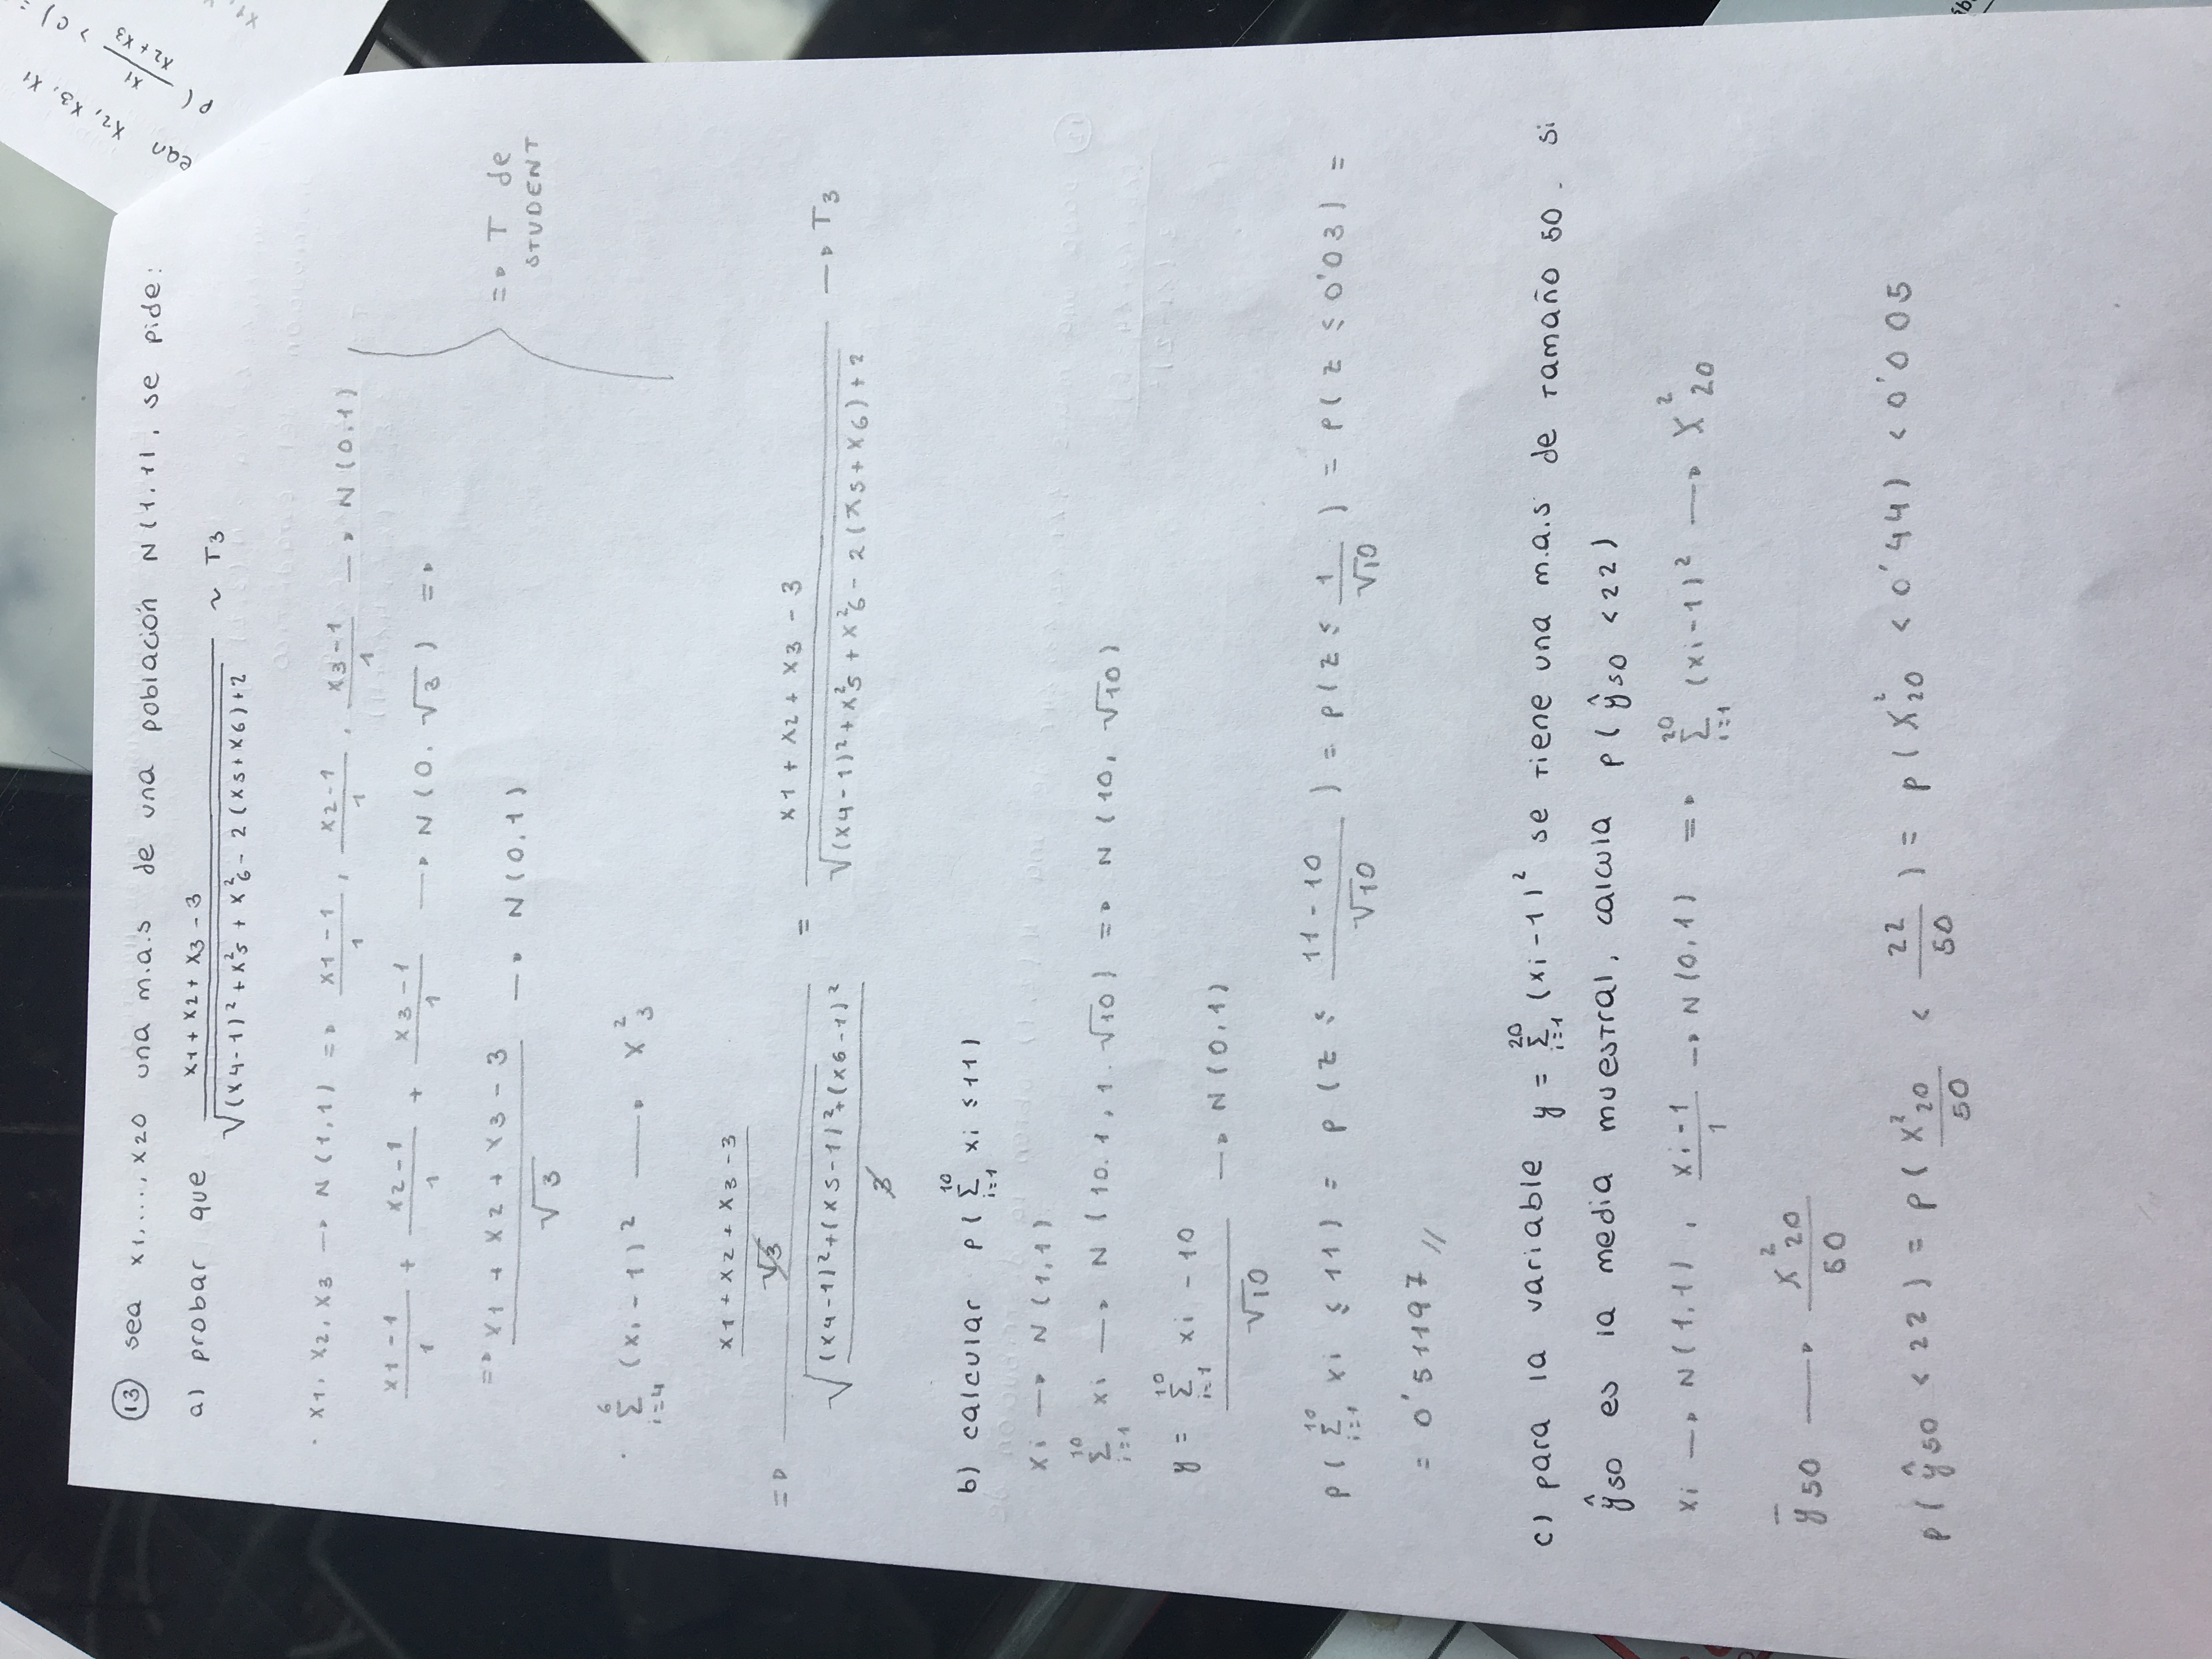 (13) sea x1,...., x20 una m.a.s de una población N(1,1), se pide:
a) probar que (x1 + x2 + x3 - 3) / √((x4-1)² + x²5 + x²6 - 2(x5+x6)+2) ~ T3
· x1, x2, x3 → N(1,1) => (x1-1)/1, (x2-1)/1, (x3-1)/1 → N(0,1)
(x1-1)/1 + (x2-1)/1 + (x3-1)/1 → N(0, √3) =>
=> (x1 + x2 + x3 - 3)/√3 → N(0,1)
=> T de
STUDENT
· Σ_{i=4}^{6} (xi-1)² → X²3
=> ((x1 + x2 + x3 - 3)/√3) / √(((x4-1)²+(x5-1)²+(x6-1)²)/3) = (x1 + x2 + x3 - 3) / √((x4-1)² + x²5 + x²6 - 2(x5+x6)+2) → T3
b) calcular P(Σ_{i=1}^{10} xi ≤ 11)
xi → N(1,1)
Σ_{i=1}^{10} xi → N(10.1, 1.√10) => N(10, √10)
y = (Σ_{i=1}^{10} xi - 10)/√10 → N(0,1)
P(Σ_{i=1}^{10} xi ≤ 11) = P(z ≤ (11-10)/√10) = P(z ≤ 1/√10) = P(z ≤ 0'03) =
= 0'51197 //
c) para la variable y = Σ_{i=1}^{20} (xi-1)² se tiene una m.a.s de tamaño 50. si
ŷ50 es la media muestral, calcula P(ŷ50 < 22)
xi → N(1,1), (xi-1)/1 → N(0,1) => Σ_{i=1}^{20} (xi-1)² → X²20
ȳ50 → X²20/50
P(ŷ50 < 22) = P(X²20/50 < 22/50) = P(X²20 < 0'44) < 0'005
ean x2, x3, x1
P( x1/(x2+x3) > c) =